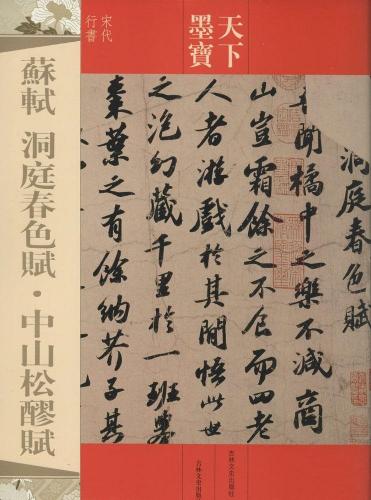 天下
墨寶
宋代
行書
蘇軾 洞庭春色賦·中山松醪賦
洞庭春色賦
吾聞橘中之樂不減商
山豈霜餘之不食而四老
人者游戲於其間悟此世
之泡幻藏千里於一班舉
棗葉之有餘納芥子其
吉林文史出版社
吉林文史出版